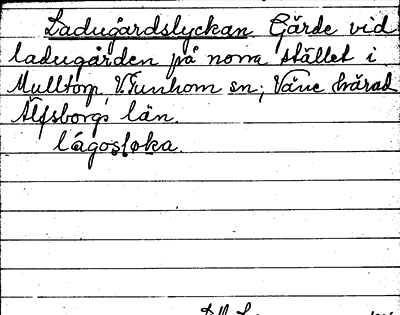 Ladugårdslyckan. Gärde vid
ladugården på norra stället i
Mulltorp, V. Tunhem sn, Väne härad
Älfsborgs län.